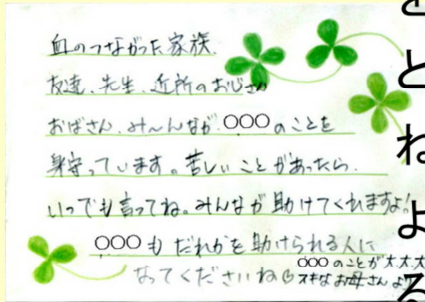 血のつながった家族、
友達、先生、近所のおじさん
おばさん、み〜んなが ○○○のことを
見守っています。苦しいことがあったら、
いつでも言ってね。みんなが助けてくれますよ!
○○○も だれかを助けられる人に
なってくださいね
○○○のことが大大大
スキなお母さんより
とねよる